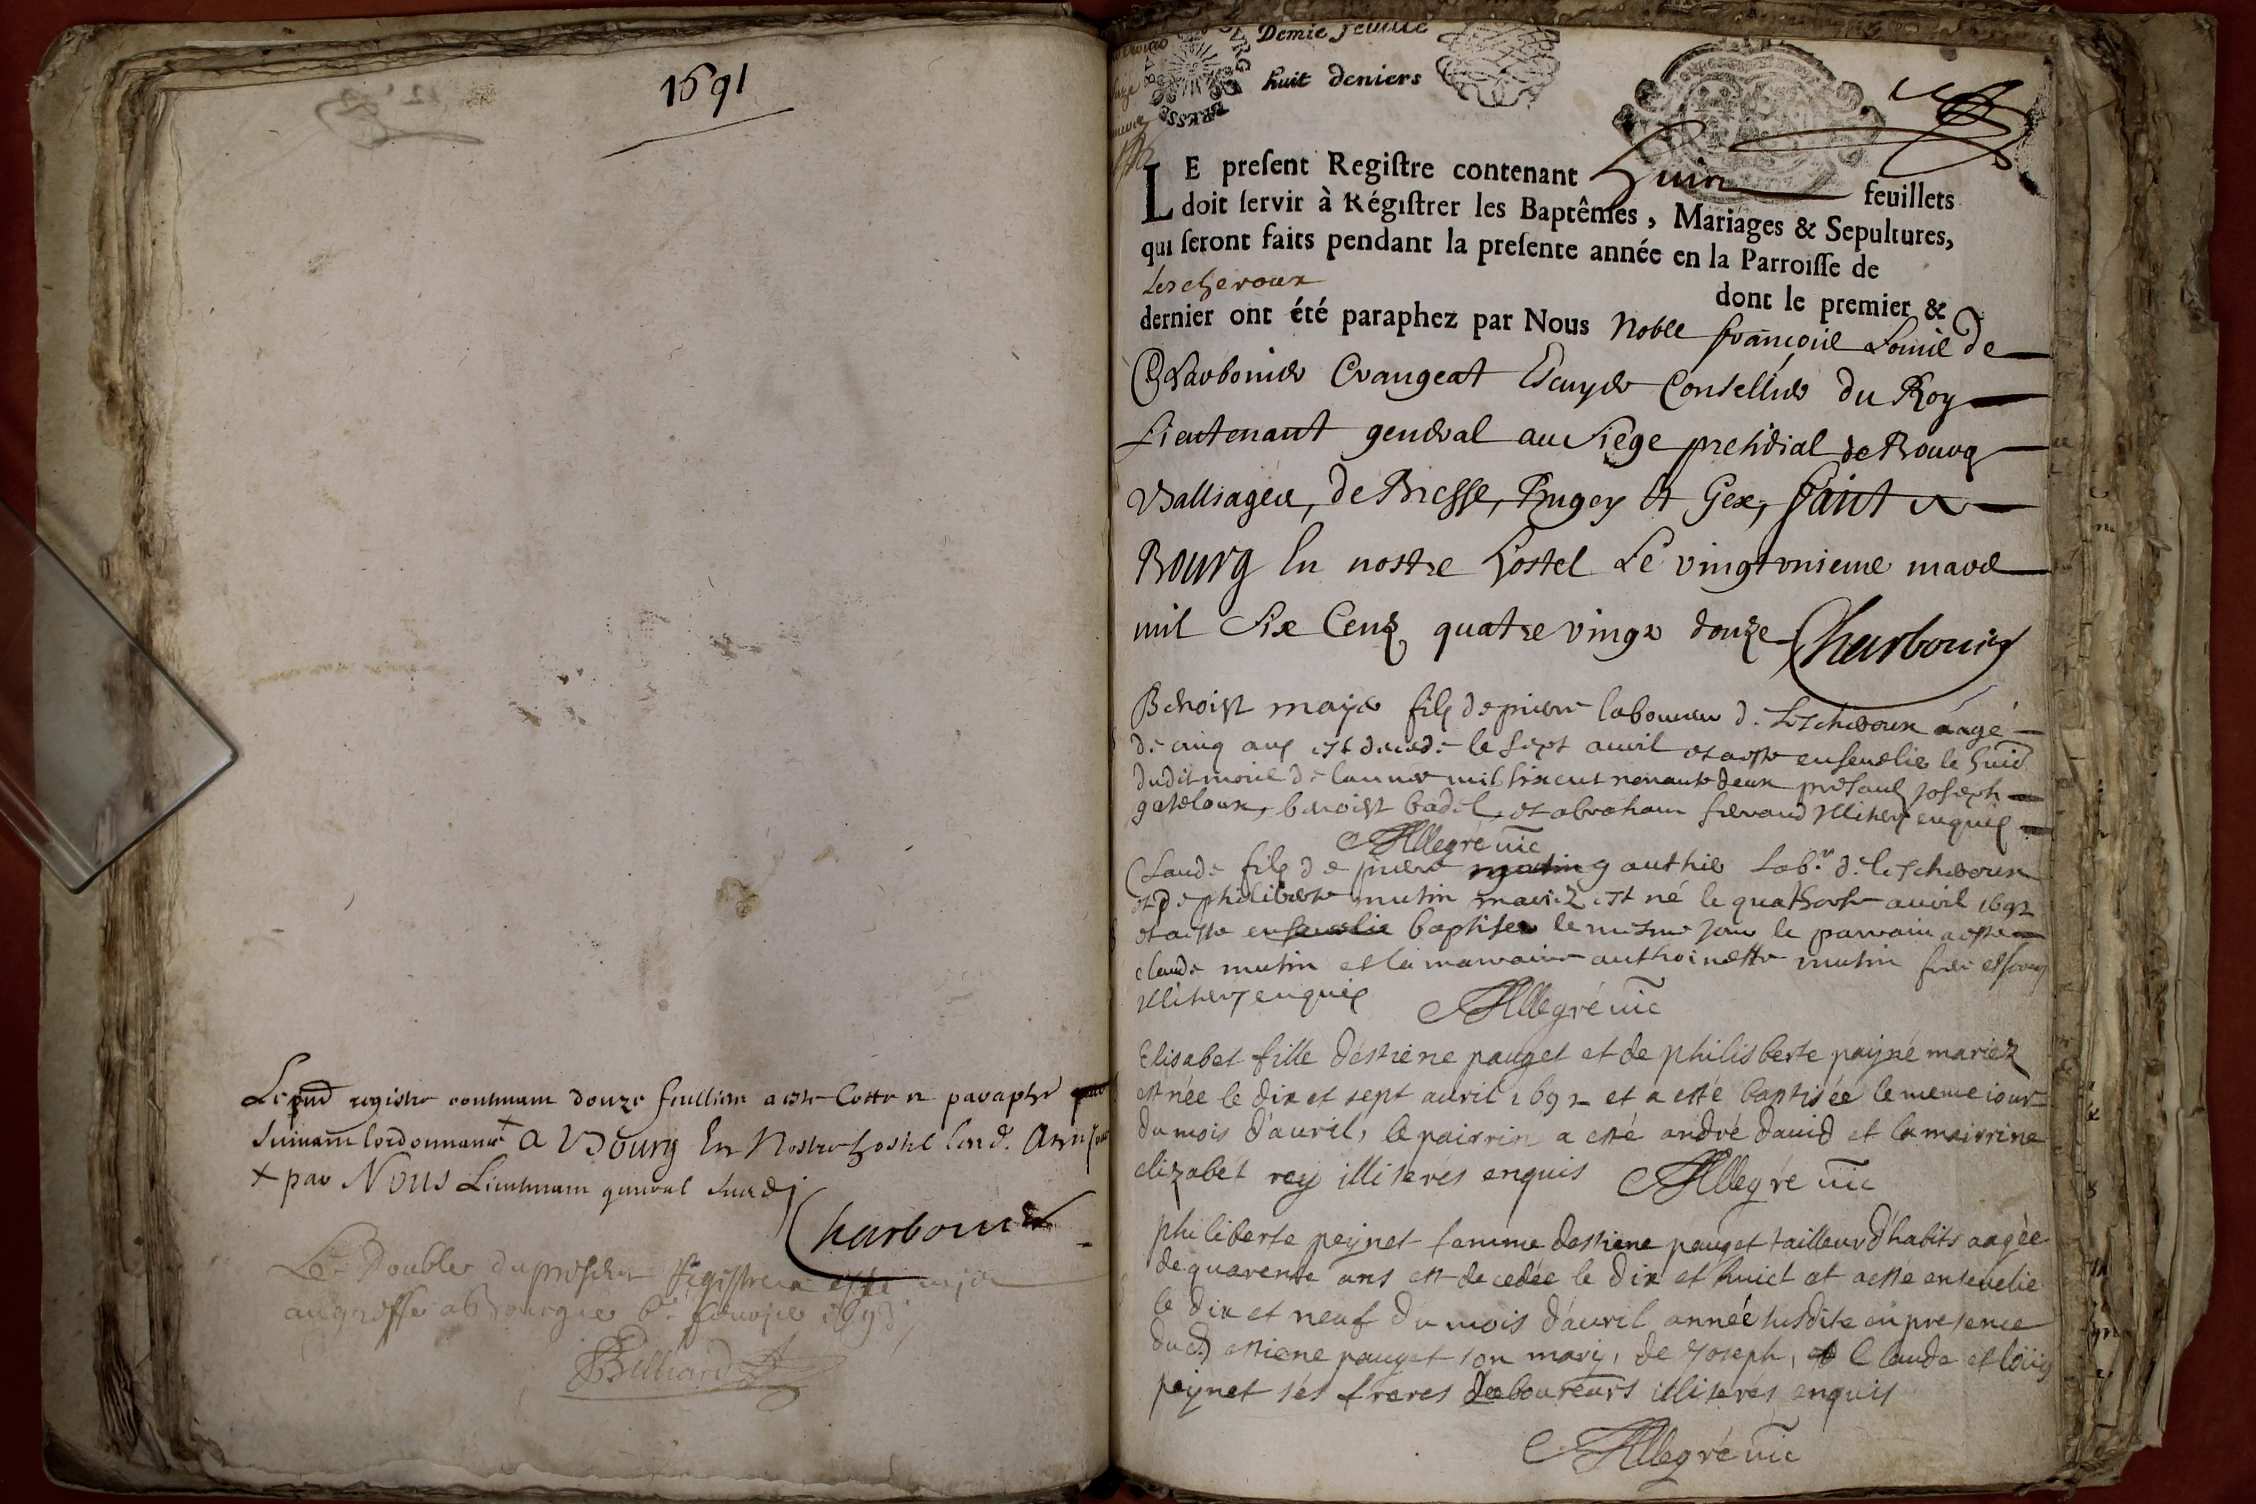 1691
Le pnt registre contenant douze feulliets a este cotté et paraphé
suivant lordonnance + A Bourg En Nostre hostel
+ par Nous Lieutenant general susd
Charbonier
Le Double du present Registre a esté mis
au greffe a Bourg le
Billiard
Demie feuille
huit deniers
BOURG BRESSE
LE preſent Regiſtre contenant huit feuillets
doit ſervir à Régiſtrer les Baptêmes, Mariages & Sepultures,
qui ſeront faits pendant la preſente année en la Parroiſſe de
Lescheroux dont le premier &
dernier ont été paraphez par Nous Noble françois Louis de
Charbonier Crangeat Escuyer Conseiller du Roy
Lieutenant general au siege presidial de Bourg
Balliages, de Bresse, Bugey et Gex, faict a
Bourg En nostre hostel Le vingt unieme mars
mil Six Cens quatre vingt douze Charbonier
Benoist maye fils de pierre laboureur d. Lescheroux aagé
de cinq ans est decede le sept avril et a este ensevelie le huit
dudit mois de lannee mil six cent nonante deux presans joseph
gateloux, benoist badel, et abraham feraud Illiteres enquis
Allegré vic
Claude fils de pierre mutin gauthier Lab.r d. lescheroux
et de philiberte mutin mariez est né le quatorse avril 1692
et a este ensevelie baptisee le mesme jour le parrain a este
claude mutin et la marraine anthoinette mutin frere et soeur
Illiteres enquis Allegré vic
Elisabet fille d'estiene pauget et de philisberte payné mariez
est née le dix et sept avril 1692 et a esté baptisée le meme iour
du mois d'avril, le pairrin a esté andré david et la mairrine
elizabet rey illiterés enquis Allegré vic
philiberte peynet femme destiene pauget tailleur d'habits aagée
de quarente ans est decedée le dix et huict et a esté ensevelie
le dix et neuf du mois d'avril année susdite en presence
dud. estiene pauget son mary, de Joseph, et Claude et loüis
peynet ses freres laboureurs illiterés enquis
Allegré vic